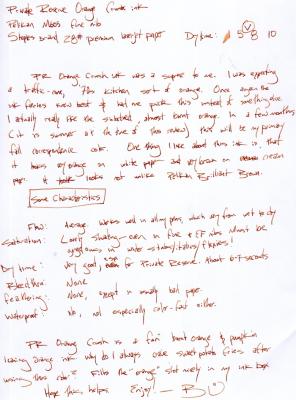 Private Reserve Orange Crush ink
Pelikan M805 fine nib
Staples brand 28# premium laserjet paper Dry time: 5 8 10
PR Orange Crush ink was a surprise to me. I was expecting
a traffic-cone, 70s kitchen sort of orange. Once again the
ink fairies knew best & had me pick this instead of something else.
I actually really like the subdued, almost burnt orange. In a few months
(it is summer at the time of this review) this will be my primary
fall correspondence color. One thing I like about this ink is that
it looks very orange on white paper and very brown on cream
paper. It looks not unlike Pelikan Brilliant Brown.
Some Characteristics
Flow: Average. Works well in all my pens, which vary from wet to dry
Saturation: Lovely shading - even in fine & EF nibs. Must be
in wider stubs/italics/flexies!
Dry time: Very good, esp. for Private Reserve. About 6-7 seconds
Bleedthru: None
Feathering: None, except in usually bad paper.
Waterproof: No, not especially color-fast either.
PR Orange Crush is a fun burnt orange & pumpkin
leaning orange ink. Why do I always crave sweet potato fries after
using this color? Fills the "orange" slot nicely in my ink box
Hope this helps. Enjoy! -